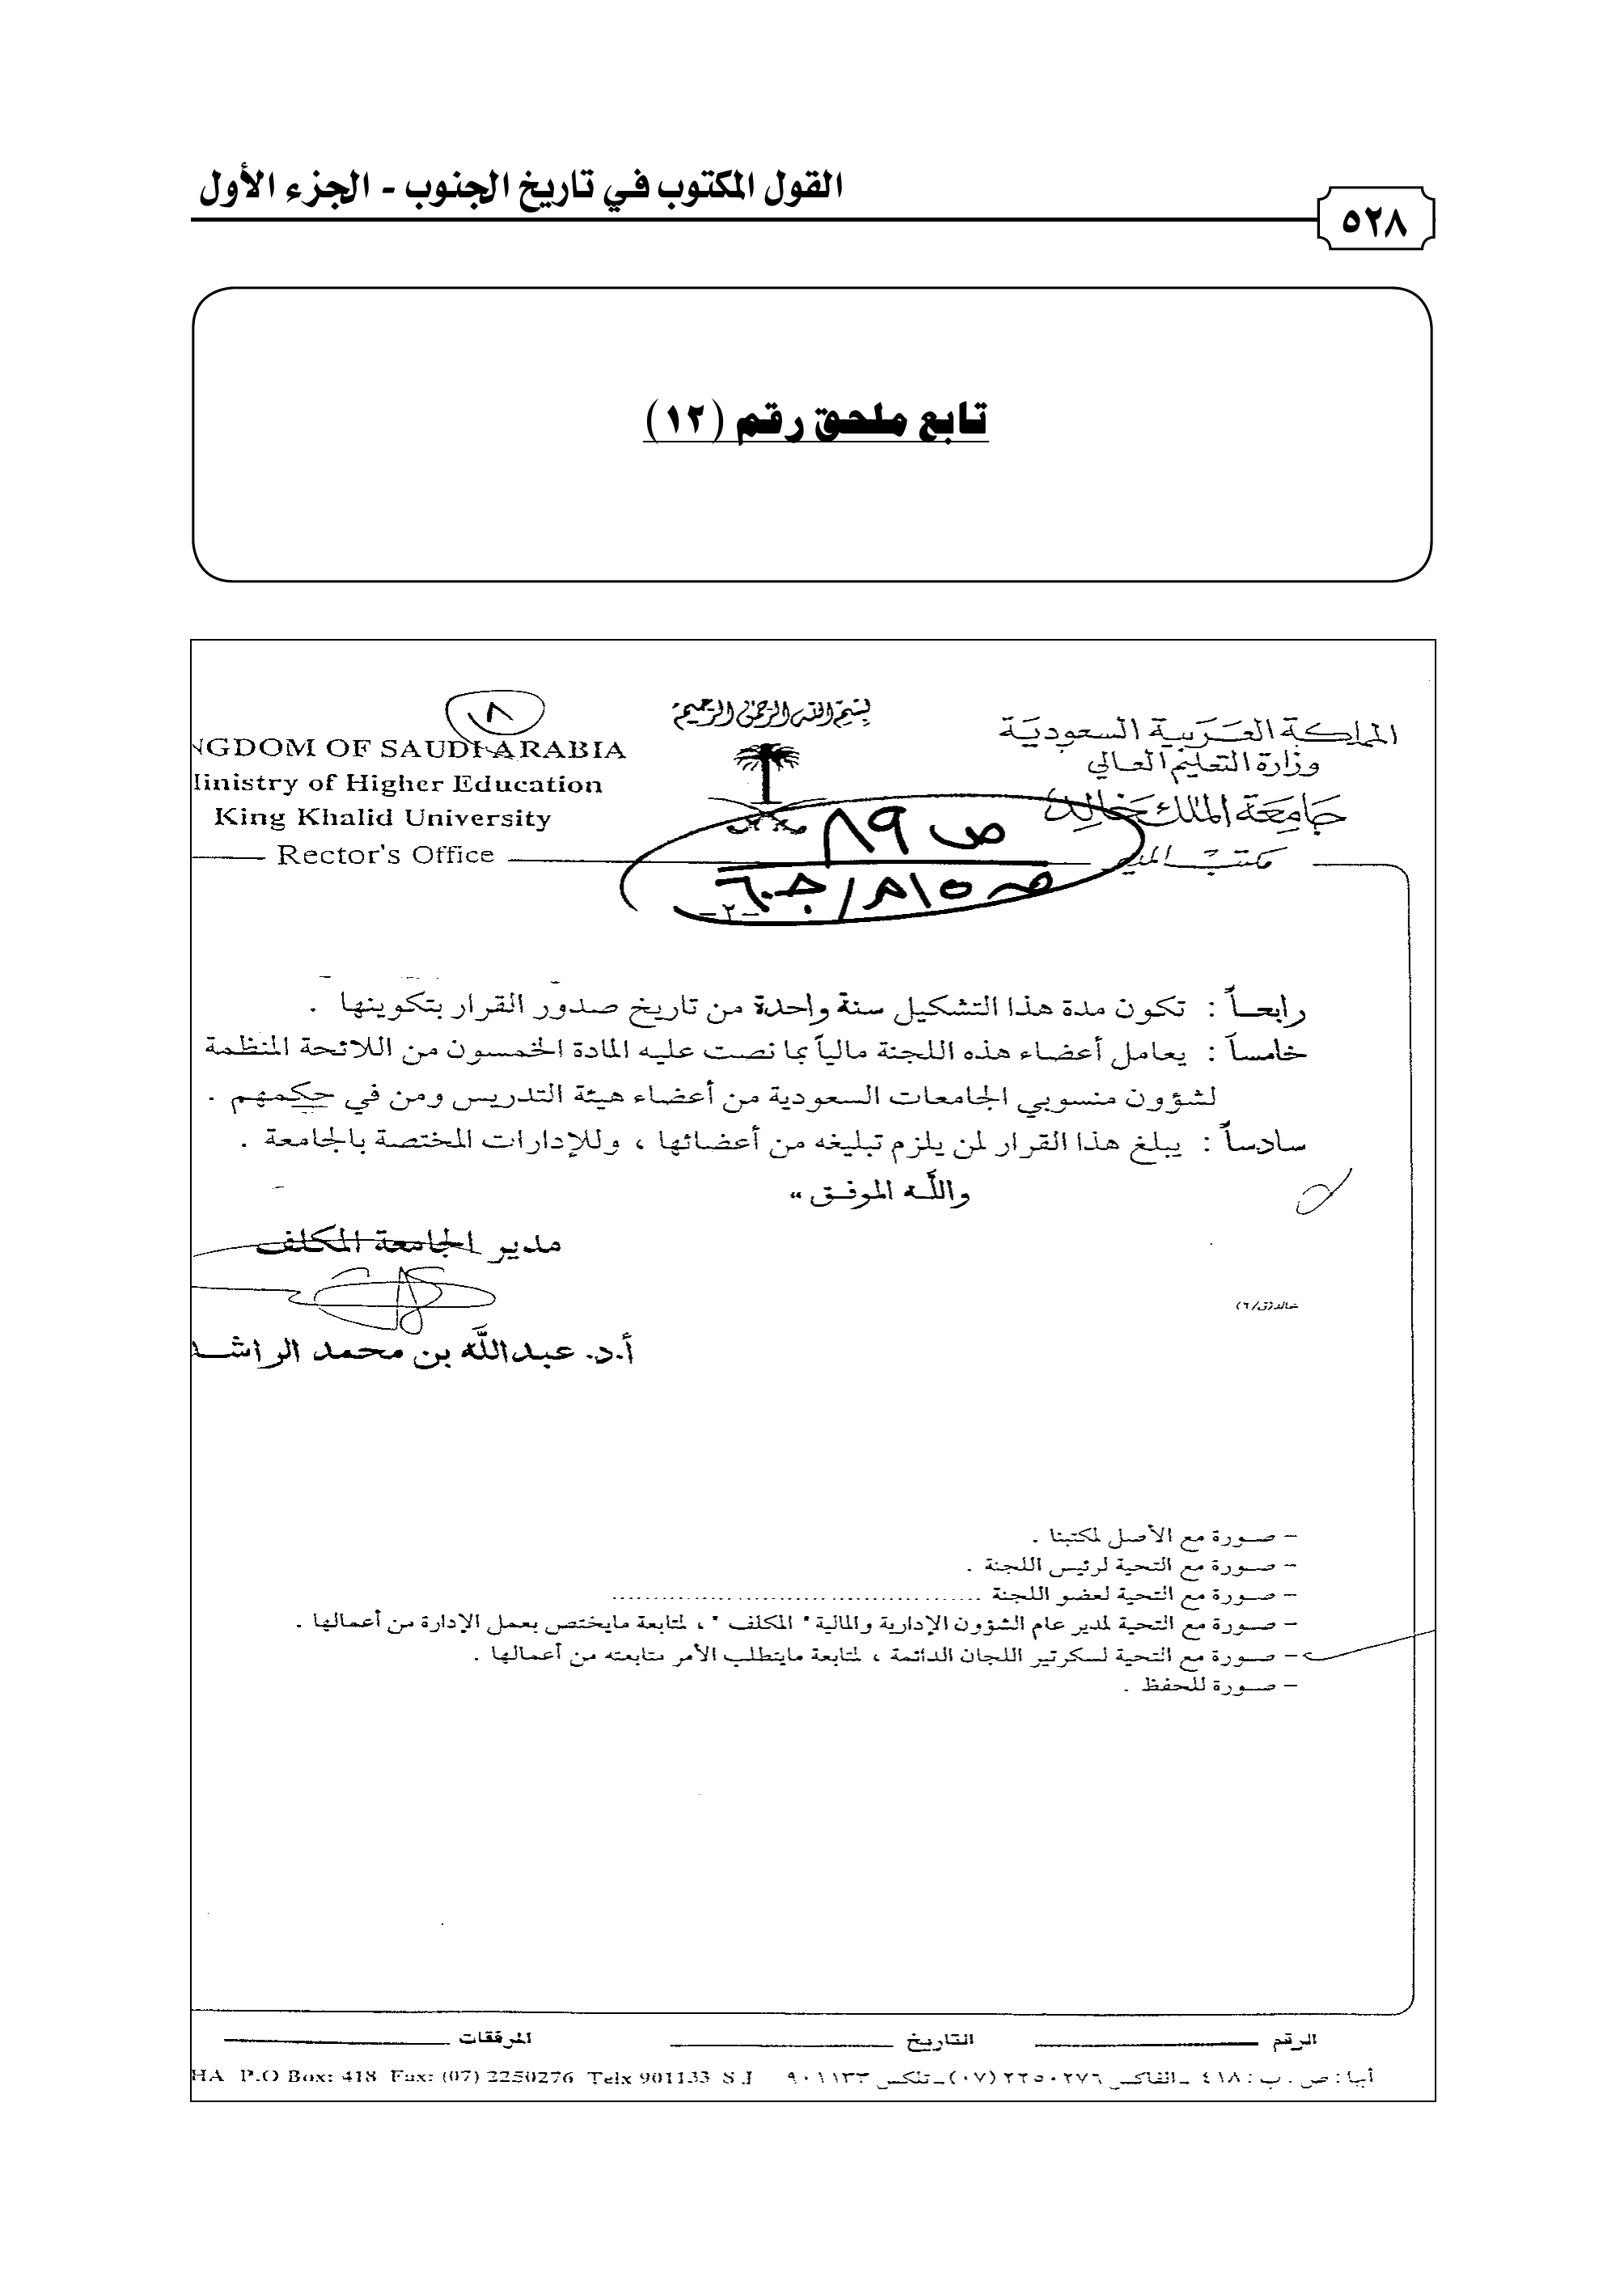 القول المكتوب في تاريخ الجنوب - الجزء الأول
٥٢٨
تابع ملحق رقم (١٢)
بسم الله الرحمن الرحيم
المملكة العربية السعودية
وزارة التعليم العالي
جامعة الملك خالد
مكتب المدير
٨
NGDOM OF SAUDI ARABIA
Ministry of Higher Education
King Khalid University
Rector's Office
ص ٨٩
-٢-
رابعـاً : تكون مدة هذا التشكيل سنة واحدة من تاريخ صدور القرار بتكوينها .
خامساً : يعامل أعضاء هذه اللجنة مالياً بما نصت عليه المادة الخمسون من اللائحة المنظمة
لشؤون منسوبي الجامعات السعودية من أعضاء هيئة التدريس ومن في حكمهم .
سادساً : يبلغ هذا القرار لمن يلزم تبليغه من أعضائها ، وللإدارات المختصة بالجامعة .
واللـه الموفـق ،،
مدير الجامعة المكلف
خالد(ق/٦)
أ.د. عبدالله بن محمد الراشـد
– صـورة مع الأصل لمكتبنا .
– صـورة مع التحية لرئيس اللجنة .
– صـورة مع التحية لعضو اللجنة ..........................................
– صـورة مع التحية لمدير عام الشؤون الإدارية والمالية " المكلف " ، لمتابعة مايختص بعمل الإدارة من أعمالها .
– صـورة مع التحية لسكرتير اللجان الدائمة ، لمتابعة مايتطلب الأمر متابعته من أعمالها .
– صـورة للحفظ .
الرقم التاريخ المرفقات
أبها : ص . ب : ٤١٨ ـ الفاكس ٢٢٥٠٢٧٦ (٠٧) ـ تلكس ٩٠١١٣٣
HA P.O Box: 418 Fax: (07) 2250276 Telx 901133 S.J